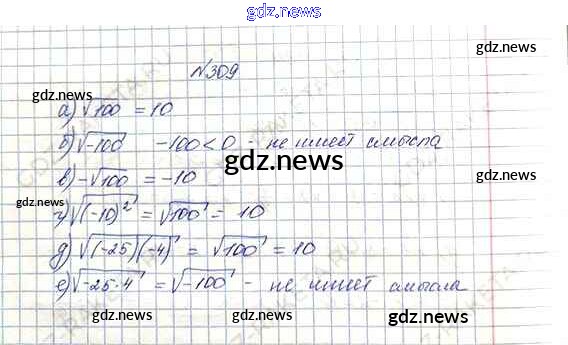 gdz.news
gdz.news
№309
gdz.news
а) √100 = 10
б) √-100 -100<0 - не имеет смысла
gdz.news
в) -√100 = -10
gdz.news
gdz.news
г) √(-10)² = √100 = 10
д) √(-25)(-4) = √100 = 10
gdz.news
е) √-25·4 = √-100 - не имеет смысла
gdz.news
gdz.news
gdz.news